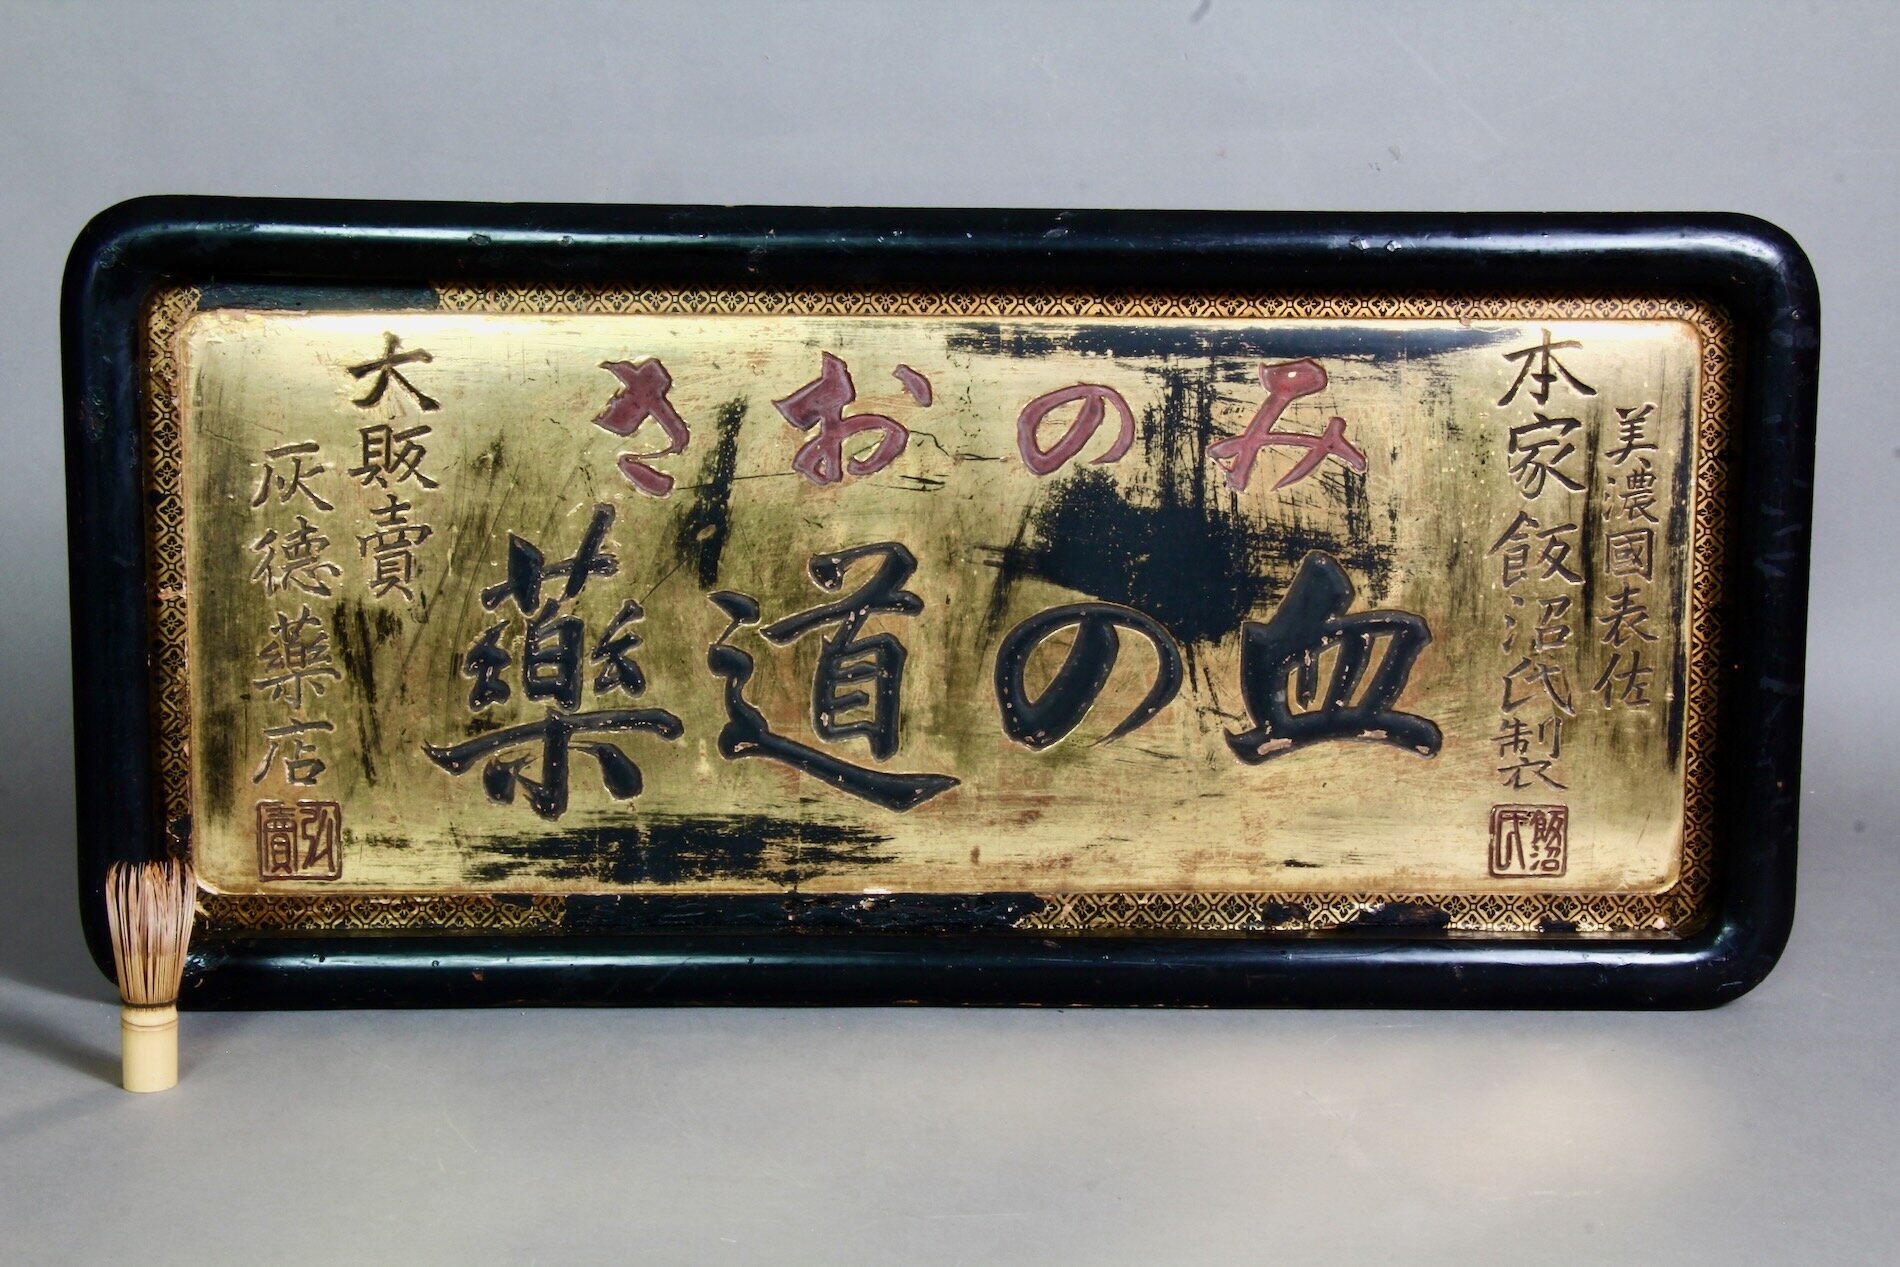 美濃國表佐
本家飯沼氏製
飯沼氏
みのおさ
血の道藥
大販賣
灰徳藥店
弘賣